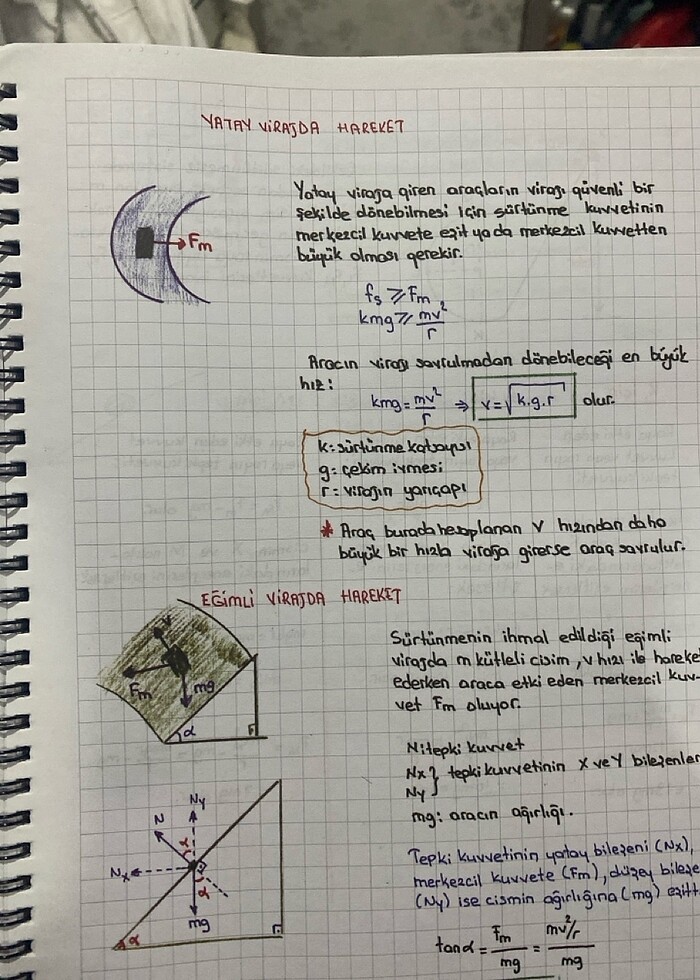 YATAY VİRAJDA HAREKET
Yatay viraja giren araçların virajı güvenli bir
şekilde dönebilmesi için sürtünme kuvvetinin
merkezcil kuvvete eşit ya da merkezcil kuvvetten
büyük olması gerekir.
Fm
fs ⩾ Fm
kmg ⩾ mv²/r
Aracın virajı savrulmadan dönebileceği en büyük
hız:
kmg = mv²/r ⇒ v = √k.g.r olur.
k: sürtünme katsayısı
g = çekim ivmesi
r = virajın yarıçapı
* Araç burada hesaplanan V hızından daha
büyük bir hızla viraja girerse araç savrulur.
EĞİMLİ VİRAJDA HAREKET
Fm mg α
Sürtünmenin ihmal edildiği eğimli
virajda m kütleli cisim, v hızı ile hareke
ederken araca etki eden merkezcil kuv-
vet Fm oluyor.
N: tepki kuvvet
Nx } tepki kuvvetinin X ve Y bileşenler
Ny
mg: aracın ağırlığı.
N Ny
α
Nx
α
mg
α
Tepki kuvvetinin yatay bileşeni (Nx),
merkezcil kuvvete (Fm), düşey bileşe
(Ny) ise cismin ağırlığına (mg) eşitt
tanα = Fm/mg = mv²/r / mg